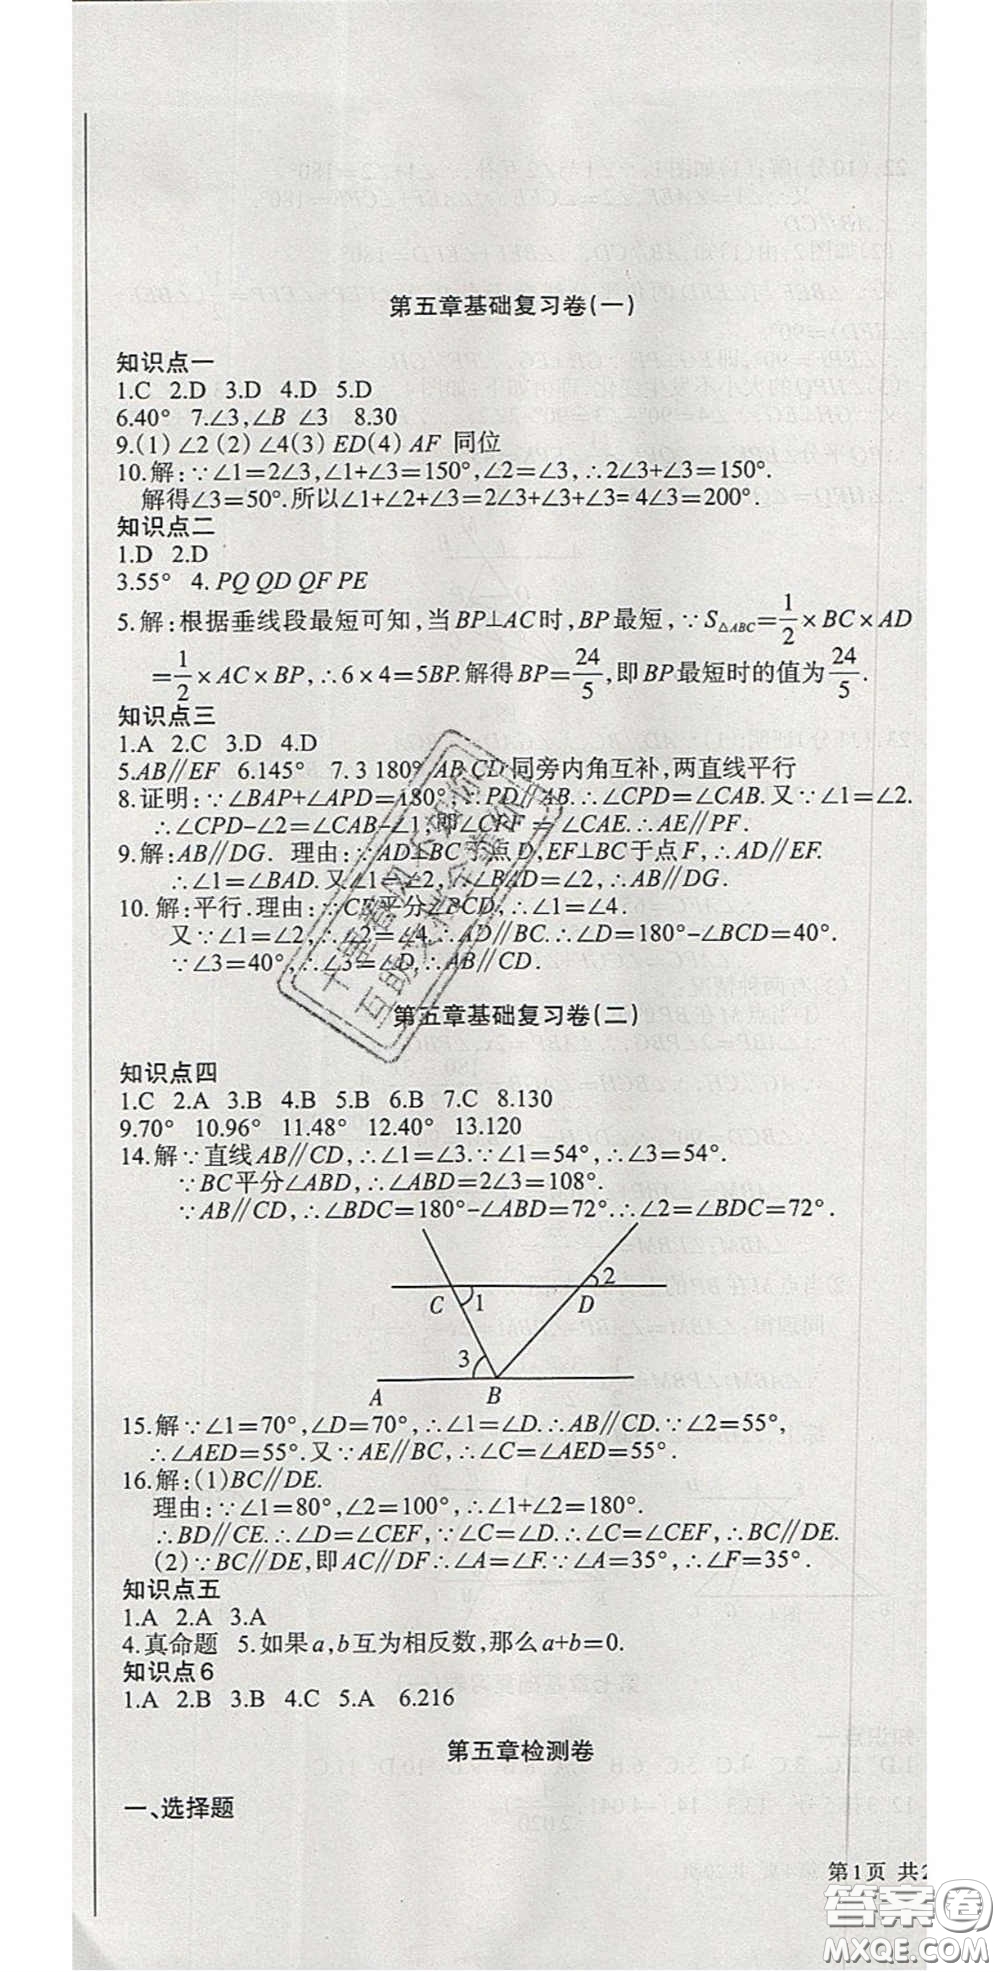 第五章基础复习卷(一)
知识点一
1.C 2.D 3.D 4.D 5.D
6.40° 7.∠3,∠B ∠3 8.30
9.(1) ∠2 (2) ∠4(3) ED(4) AF 同位
10.解:∵∠1=2∠3,∠1+∠3=150°,∠2=∠3,∴2∠3+∠3=150°.
解得∠3=50°.所以∠1+∠2+∠3=2∠3+∠3+∠3=4∠3=200°.
知识点二
1.D 2.D
3.55° 4. PQ QD QF PE
5.解:根据垂线段最短可知,当BP⊥AC时,BP最短,∵S△ABC=1/2×BC×AD
=1/2×AC×BP,∴6×4=5BP.解得BP=24/5,即BP最短时的值为24/5.
知识点三
1.A 2.C 3.D 4.D
5.AB∥EF 6.145° 7.3 180° AB CD 同旁内角互补,两直线平行
8.证明:∵∠BAP+∠APD=180°,∴PD=AB.∴∠CPD=∠CAB.又∵∠1=∠2.
∴∠CPD-∠2=∠CAB-∠1,即∠CPF=∠CAE.∴AE∥PF.
9.解:AB∥DG. 理由:∵AD⊥BC于点D,EF⊥BC于点F,∴AD∥EF.
∴∠1=∠BAD.又∠1=∠2,∴∠BAD=∠2,∴AB∥DG.
10.解:平行.理由:∵CE平分∠BCD,∴∠1=∠4.
又∵∠1=∠2,∴∠2=∠4.∴AD∥BC.∴∠D=180°-∠BCD=40°.
∵∠3=40°,∴∠3=∠D,∴AB∥CD.
第五章基础复习卷(二)
知识点四
1.C 2.A 3.B 4.B 5.B 6.B 7.C 8.130
9.70° 10.96° 11.48° 12.40° 13.120
14.解∵直线AB∥CD,∴∠1=∠3.∵∠1=54°,∴∠3=54°.
∵BC平分∠ABD,∴∠ABD=2∠3=108°.
∵AB∥CD,∴∠BDC=180°-∠ABD=72°.∴∠2=∠BDC=72°.
2
C 1 D
3
A B
15.解∵∠1=70°,∠D=70°,∴∠1=∠D.∴AB∥CD.∵∠2=55°,
∴∠AED=55°.又∵AE∥BC,∴∠C=∠AED=55°.
16.解:(1)BC∥DE.
理由:∵∠1=80°,∠2=100°,∴∠1+∠2=180°.
∴BD∥CE.∴∠D=∠CEF,∵∠C=∠D.∴∠C=∠CEF,∴BC∥DE.
(2)∵BC∥DE,即AC∥DF∴∠A=∠F.∵∠A=35°,∴∠F=35°.
知识点五
1.A 2.A 3.A
4.真命题 5.如果a,b互为相反数,那么a+b=0.
知识点6
1.A 2.B 3.B 4.C 5.A 6.216
第五章检测卷
一、选择题
第1页 共2
答案圈
MXQE.COM